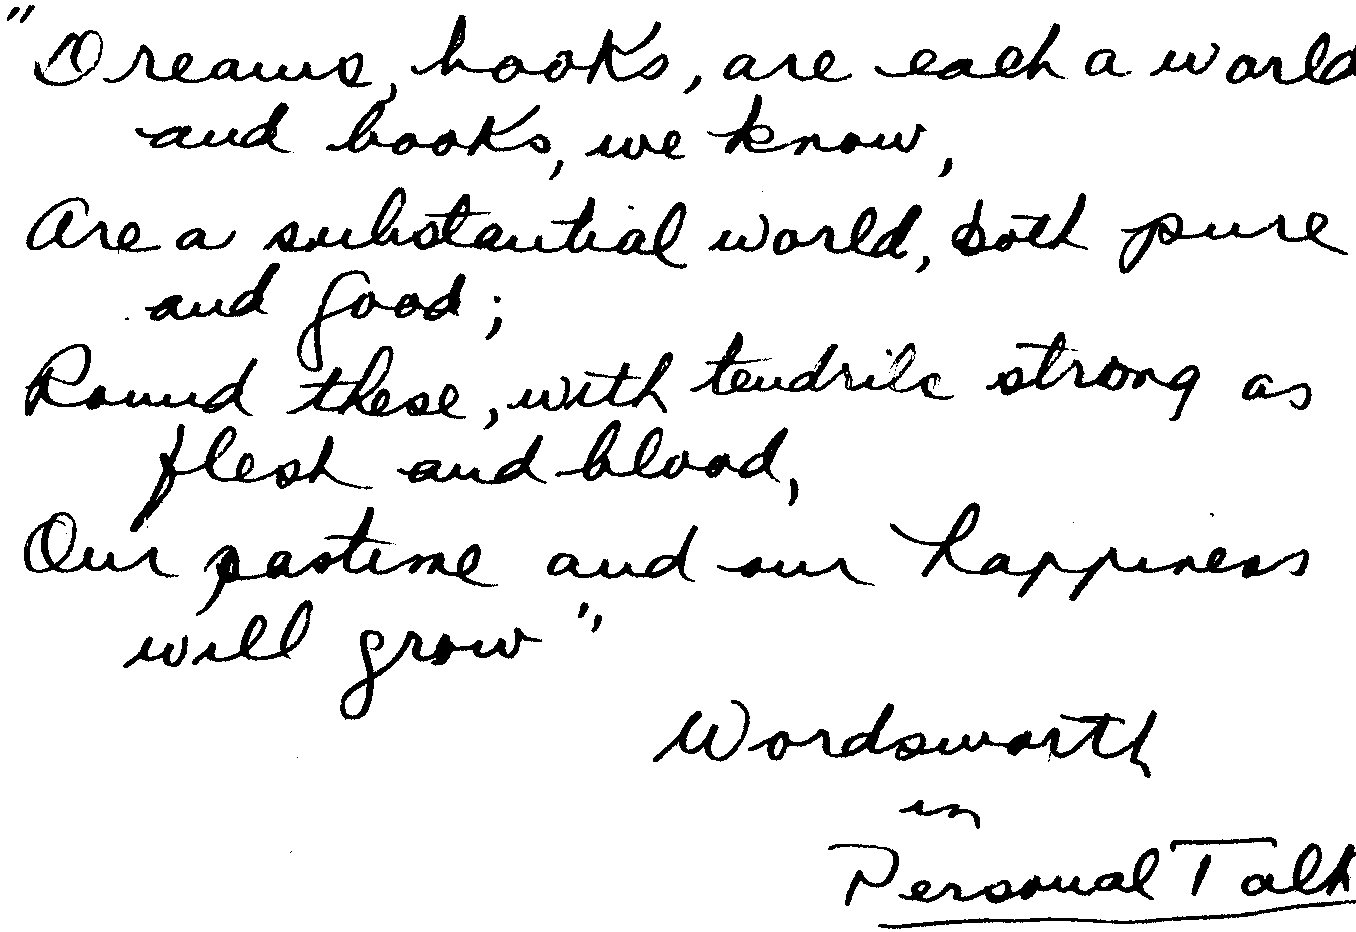 "Dreams, books, are each a world
and books, we know,
Are a substantial world, both pure
and good;
Round these, with tendrils strong as
flesh and blood,
Our pastime and our happiness
will grow"
Wordsworth
in
Personal Talk